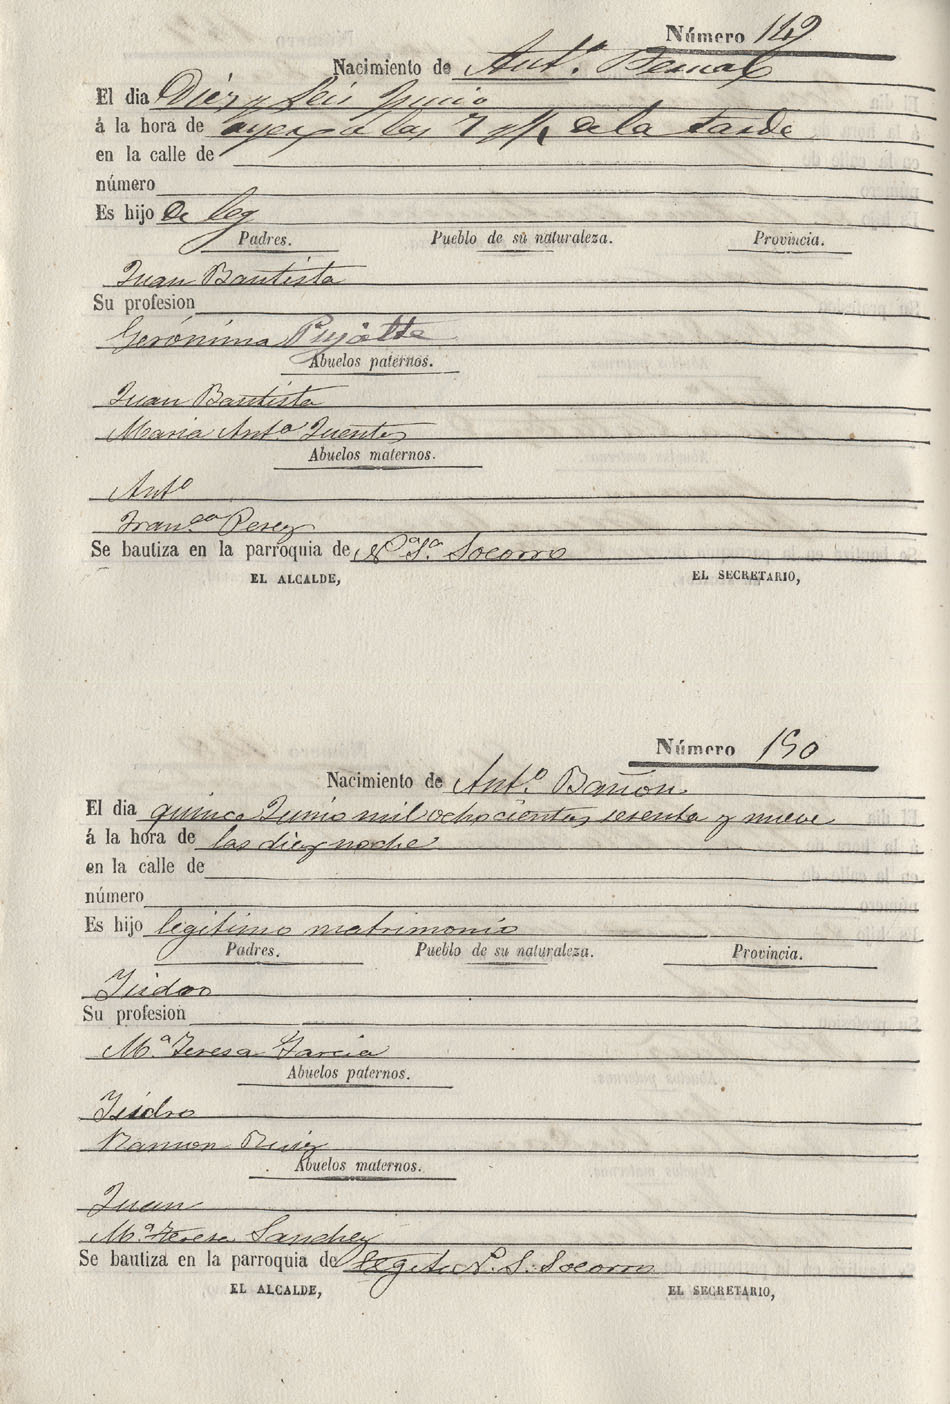 Número 149
Nacimiento de Ant.º Bernal
El dia Diez y seis Junio
á la hora de ayer a las 7 y ½ de la tarde
en la calle de
número
Es hijo de leg
Padres. Pueblo de su naturaleza. Provincia.
Juan Bautista
Su profesion
Gerónima Pujalte
Abuelos paternos.
Juan Bautista
Maria Ant.ª Fuentes
Abuelos maternos.
Ant.º
Fran.ca Perez
Se bautiza en la parroquia de N.ª S.ª Socorro
EL ALCALDE, EL SECRETARIO,
Número 150
Nacimiento de Ant.º Bañon
El dia quince Junio mil ochocientos sesenta y nueve
á la hora de las diez noche
en la calle de
número
Es hijo legitimo matrimonio
Padres. Pueblo de su naturaleza. Provincia.
Isidro
Su profesion
M.ª Teresa Garcia
Abuelos paternos.
Isidro
Ramon
Abuelos maternos.
Juan
M.ª Teresa Sanchez
Se bautiza en la parroquia de N. S. Socorro
EL ALCALDE, EL SECRETARIO,